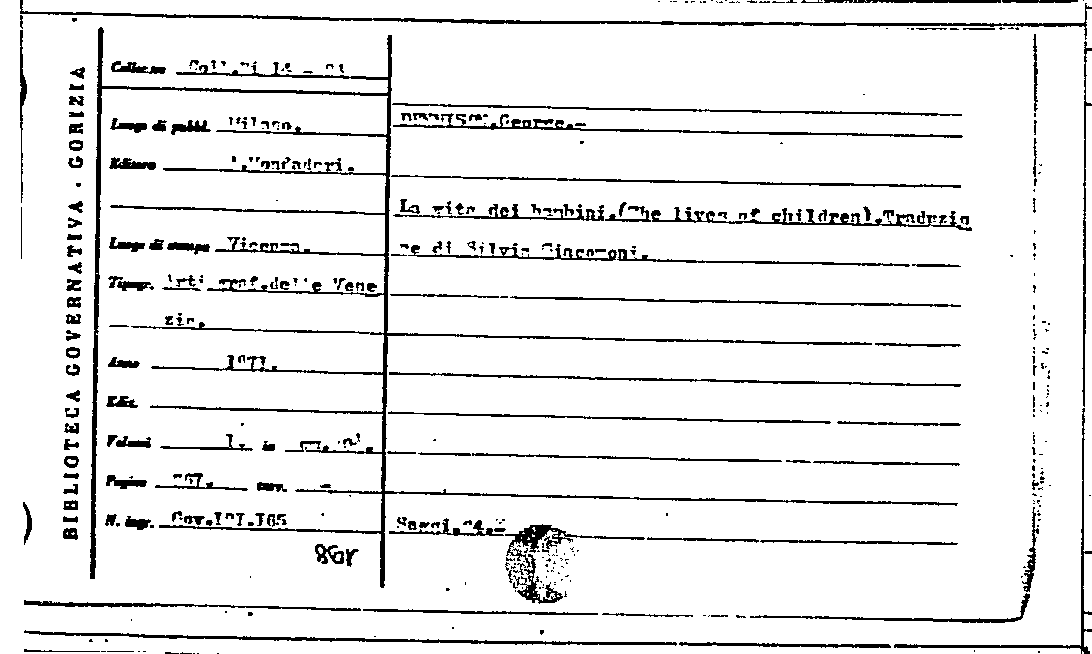 BIBLIOTECA GOVERNATIVA - GORIZIA
Collocaz. Coll.
Luogo di pubbl. Milano.
Editore A.Mondadori.
Luogo di stampa Vicenza.
Tipogr. Arti graf.delle Vene
zie.
Anno 1971.
Ediz.
Volumi 1. in cm.
Pagine tav. -
N. ingr. Gov.
DENNISON,George.-
La vita dei bambini.(The lives of children).Traduzio
ne di Silvia Giacomoni.
Saggi.